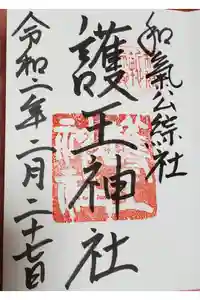 和氣公綜社
護王神社
令和二年二月二十七日